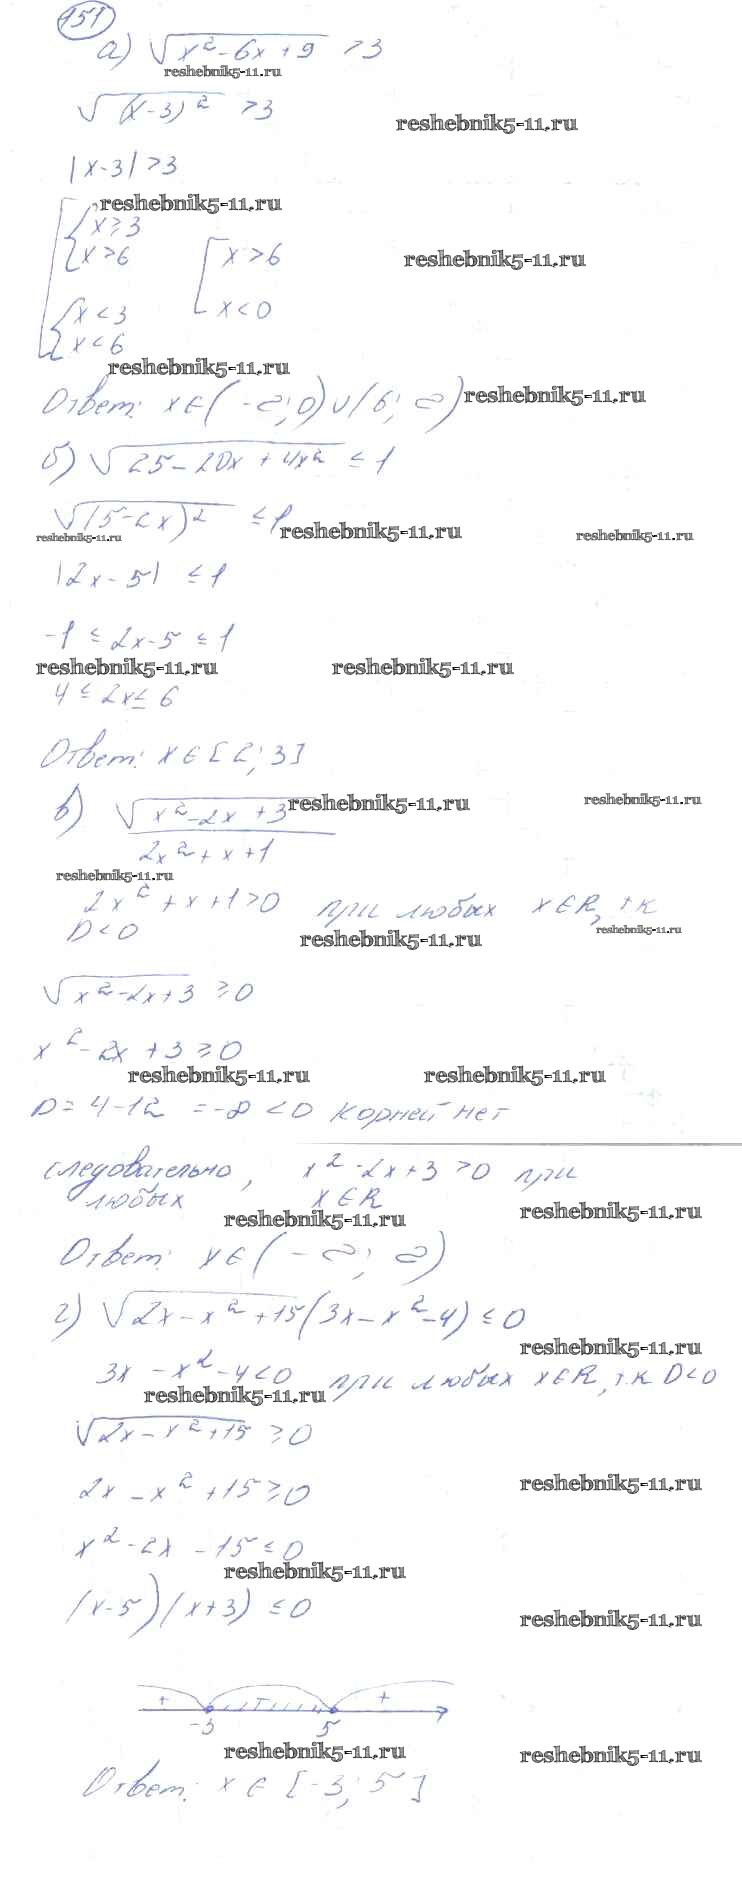 151
а) √(x² - 6x + 9) > 3
reshebnik5-11.ru
√((x-3)²) > 3
reshebnik5-11.ru
|x-3| > 3
reshebnik5-11.ru
x ≥ 3
x > 6
x > 6
reshebnik5-11.ru
x < 3
x < 0
x < 6
reshebnik5-11.ru
Ответ: x ∈ (-∞; 0) ∪ (6; ∞)
reshebnik5-11.ru
б) √(25 - 20x + 4x²) ≤ 1
√((5-2x)²) ≤ 1
reshebnik5-11.ru
reshebnik5-11.ru
reshebnik5-11.ru
|2x - 5| ≤ 1
-1 ≤ 2x-5 ≤ 1
reshebnik5-11.ru
reshebnik5-11.ru
4 ≤ 2x ≤ 6
Ответ: x ∈ [2; 3]
в) √(x² - 2x + 3)
reshebnik5-11.ru
reshebnik5-11.ru
2x² + x + 1
reshebnik5-11.ru
2x² + x + 1 > 0 при любых x ∈ R, т.к
D < 0
reshebnik5-11.ru
reshebnik5-11.ru
√(x² - 2x + 3) ≥ 0
x² - 2x + 3 ≥ 0
reshebnik5-11.ru
reshebnik5-11.ru
D = 4 - 12 = -8 < 0 корней нет
следовательно, x² - 2x + 3 > 0 при
любых x ∈ R
reshebnik5-11.ru
reshebnik5-11.ru
Ответ: x ∈ (-∞; ∞)
г) √(2x - x² + 15) (3x - x² - 4) ≤ 0
reshebnik5-11.ru
3x - x² - 4 < 0 при любых x ∈ R, т.к D < 0
reshebnik5-11.ru
√(2x - x² + 15) ≥ 0
2x - x² + 15 ≥ 0
reshebnik5-11.ru
x² - 2x - 15 ≤ 0
reshebnik5-11.ru
(x-5)(x+3) ≤ 0
reshebnik5-11.ru
+ - +
-3 5
reshebnik5-11.ru
reshebnik5-11.ru
Ответ: x ∈ [-3; 5]